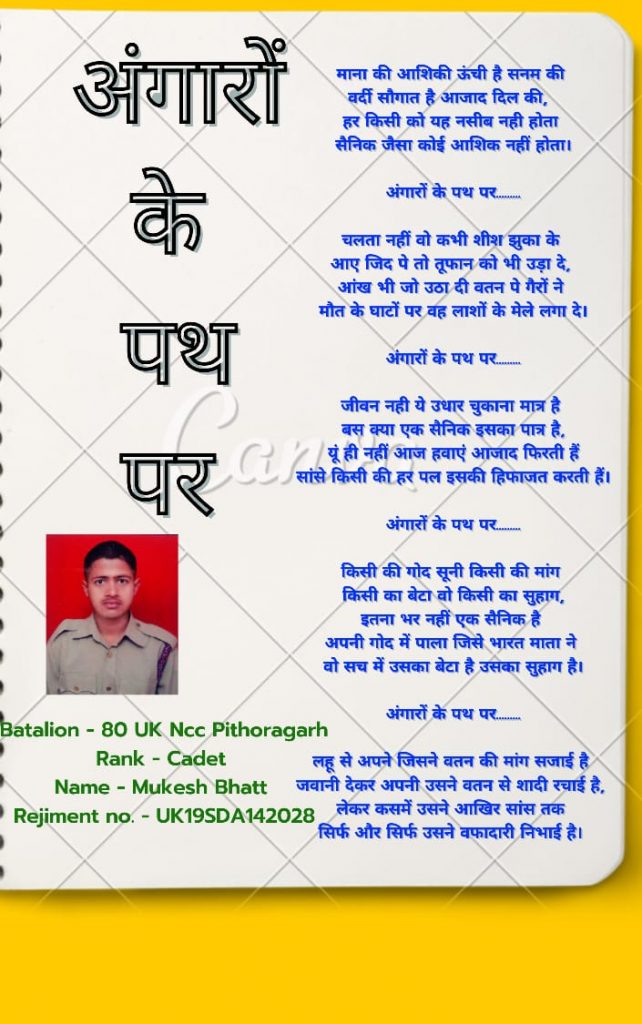 अंगारों
के
पथ
पर
माना की आशिकी ऊंची है सनम की
वर्दी सौगात है आजाद दिल की,
हर किसी को यह नसीब नही होता
सैनिक जैसा कोई आशिक नहीं होता।
अंगारों के पथ पर.........
चलता नहीं वो कभी शीश झुका के
आए जिद पे तो तूफान को भी उड़ा दे,
आंख भी जो उठा दी वतन पे गैरों ने
मौत के घाटों पर वह लाशों के मेले लगा दे।
अंगारों के पथ पर.........
जीवन नही ये उधार चुकाना मात्र है
बस क्या एक सैनिक इसका पात्र है,
यूं ही नहीं आज हवाएं आजाद फिरती हैं
सांसे किसी की हर पल इसकी हिफाजत करती हैं।
अंगारों के पथ पर.........
किसी की गोद सूनी किसी की मांग
किसी का बेटा वो किसी का सुहाग,
इतना भर नहीं एक सैनिक है
अपनी गोद में पाला जिसे भारत माता ने
वो सच में उसका बेटा है उसका सुहाग है।
अंगारों के पथ पर.........
लहू से अपने जिसने वतन की मांग सजाई है
जवानी देकर अपनी उसने वतन से शादी रचाई है,
लेकर कसमें उसने आखिर सांस तक
सिर्फ और सिर्फ उसने वफादारी निभाई है।
Batalion - 80 UK Ncc Pithoragarh
Rank - Cadet
Name - Mukesh Bhatt
Rejiment no. - UK19SDA142028
Canva